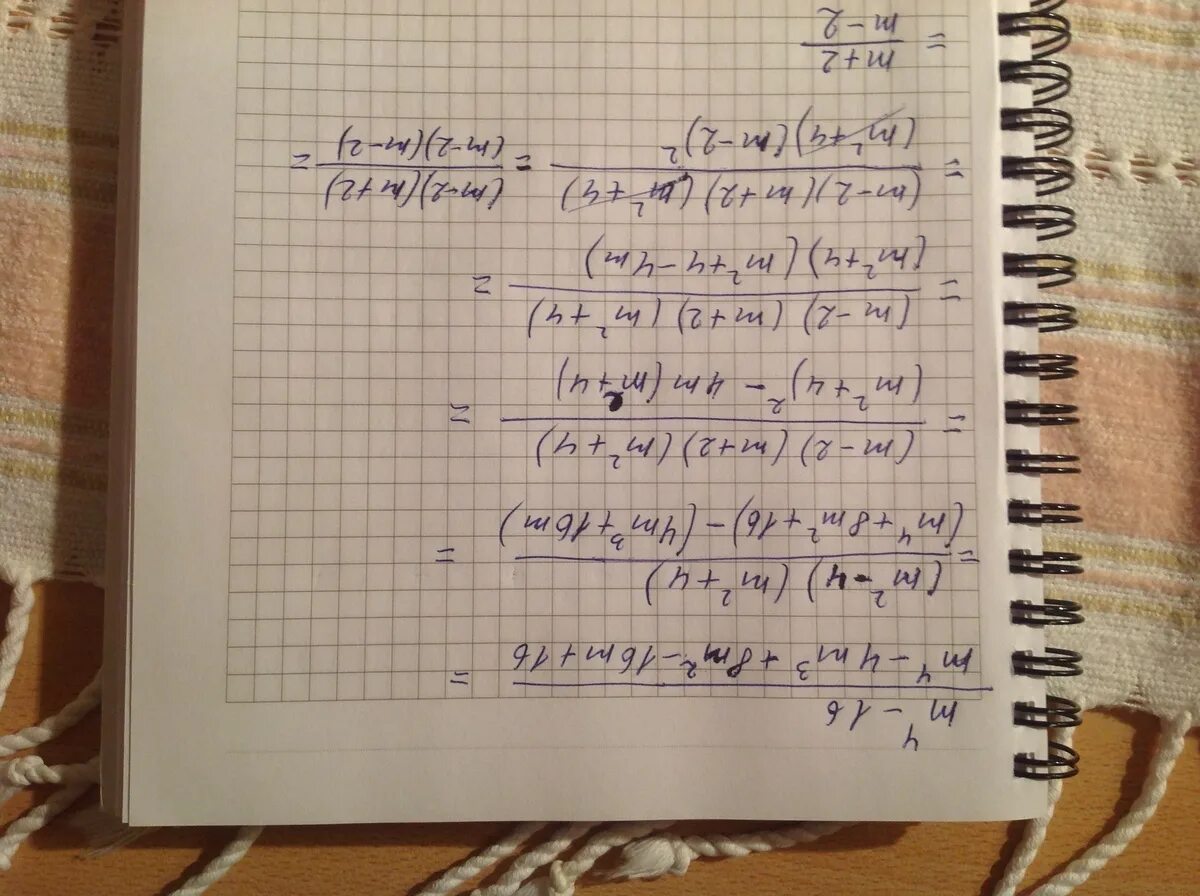 m⁴ - 16
m⁴ - 4m³ + 8m² - 16m + 16 =
= (m² - 4) (m² + 4)
(m⁴ + 8m² + 16) - (4m³ + 16m) =
= (m - 2) (m + 2) (m² + 4)
(m² + 4)² - 4m (m² + 4) =
= (m - 2) (m + 2) (m² + 4)
(m² + 4) (m² + 4 - 4m) =
= (m - 2)(m + 2) (m² + 4) = (m - 2)(m + 2) =
(m² + 4)(m - 2)² (m - 2)(m - 2)
= m + 2
m - 2